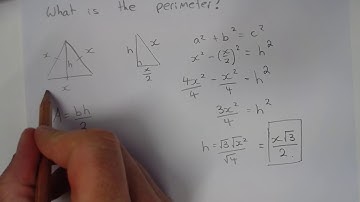 What is the perimeter?
x x h x
h x x/2
a² + b² = c²
x² - (x/2)² = h²
4x²/4 - x²/4 = h²
3x²/4 = h²
h = √3√x²/√4 = x√3/2
A = bh/2